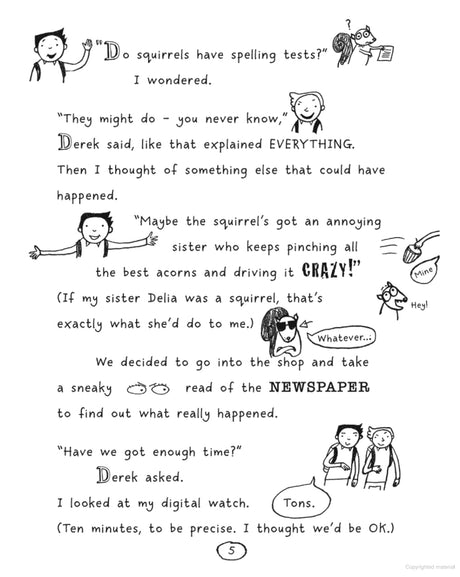 "Do squirrels have spelling tests?"
?
I wondered.
"They might do – you never know,"
Derek said, like that explained EVERYTHING.
Then I thought of something else that could have
happened.
"Maybe the squirrel's got an annoying
sister who keeps pinching all
the best acorns and driving it CRAZY!"
Mine
(If my sister Delia was a squirrel, that's
Hey!
exactly what she'd do to me.)
Whatever...
We decided to go into the shop and take
a sneaky read of the NEWSPAPER
to find out what really happened.
"Have we got enough time?"
Derek asked.
I looked at my digital watch.
Tons.
(Ten minutes, to be precise. I thought we'd be OK.)
5
Copyrighted material